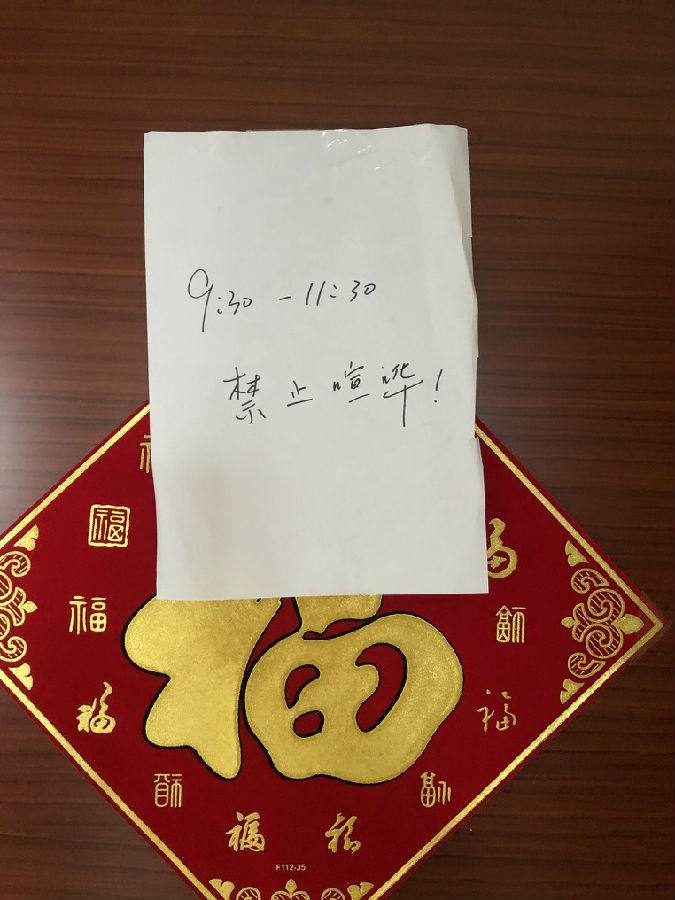 9:30 - 11:30
禁止喧哗!
福
福
福
福
福
福
福
福
福
F112-35